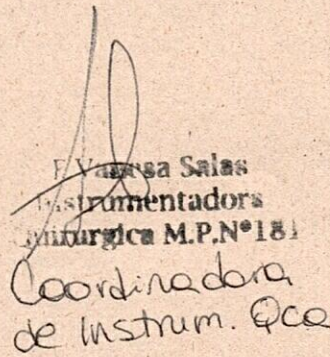 Vanesa Salas
Instrumentadora
Quirurgica M.P.Nº181
Coordinadora
de Instrum. Qca